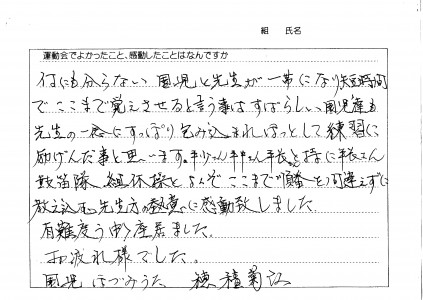 組　氏名
運動会でよかったこと、感動したことはなんですか
何にも分らない園児と先生が一帯になり短時間
でここまで覚えさせると言う事はすばらしい、園児達も
先生の一心にすっぽり包み込まれほっとして練習に
励げんだ事と思います。
鼓笛隊、組体様と よくぞここまで順番を間違えずに
教え込む先生方の熱意に感動致しました。
有難度う御座居ました。
お疲れ様でした。
園児 ほづみうた　穂積菊